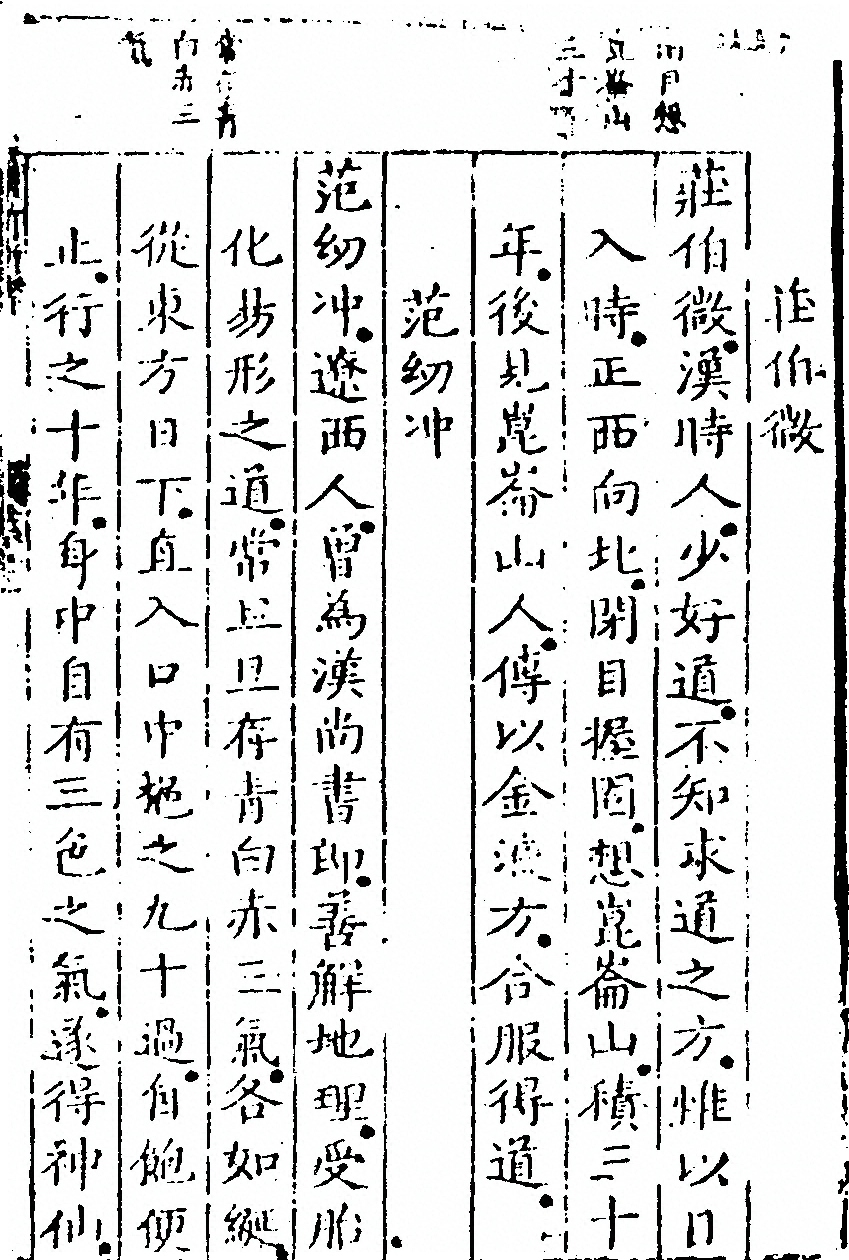 莊伯微
莊伯微漢時人少好道不知求道之方惟以日
入時正西向北閉目握固想崑崙山積三十
年後見崑崙山人傳以金液方合服得道
范幼冲
范幼冲遼西人曾為漢尚書郎善解地理受胎
化易形之道常旦旦存青白赤三氣各如綖
從東方日下直入口中挹之九十過自飽便
止行之十年身中自有三色之氣遂得神仙
閉目想
崑崙山
三十
常存青
白赤三
氣